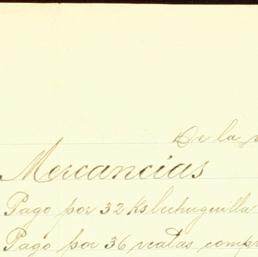 De la
Mercancias
Pago por 32 ks lechuguilla
Pago por 36 reatas compr